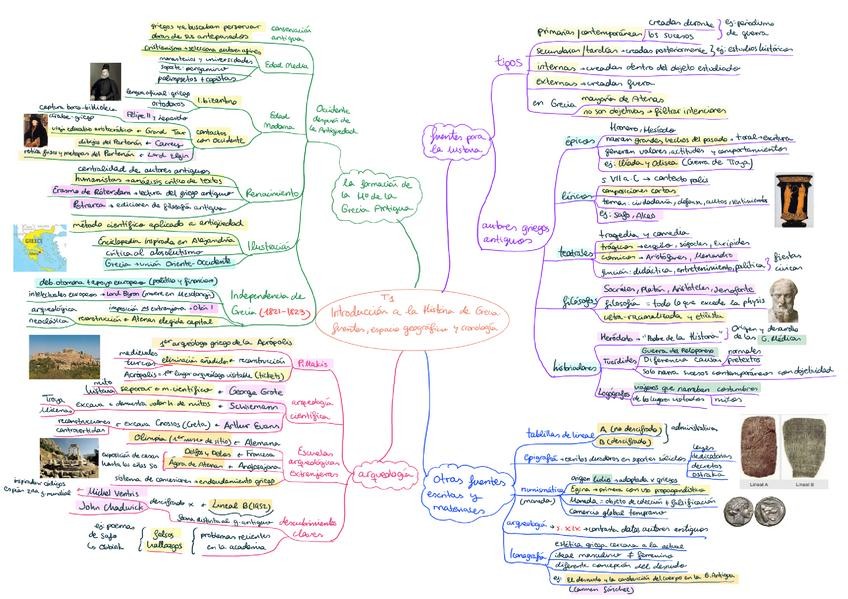 T1
Introducción a la Historia de Grecia
fuentes, espacio geográfico y cronología
la formación de
la Hª de la
Grecia Antigua
Occidente
después de
la Antigüedad
conservación
antigua
griegos ya buscaban preservar
obras de sus antepasados
Edad Media
cristianismo → selecciona autores afines
monasterios y universidades
soporte: pergamino
palimpsestos + copistas
Edad
Moderna
I. bizantino
lengua oficial: griego
ortodoxos
contactos
con Occidente
Felipe II y legado
captura barco-biblioteca
árabe-griego
viaje educativo aristocrático ← Grand Tour
dibujos del Partenón ← Carrey
retira frisos y metopas del Partenón ← Lord Elgin
Renacimiento
centralidad de autores antiguos
humanistas → análisis crítico de textos
Erasmo de Róterdam → lectura del griego antiguo
Petrarca → ediciones de filosofía antigua
Ilustración
método científico aplicado a antigüedad
Enciclopedia inspirada en Alejandría
crítica al absolutismo
Grecia → unión Oriente-Occidente
GREECE
Independencia de
Grecia (1821-1823)
deb. otomana + apoyo europeo (político y financiero)
intelectuales europeos → Lord Byron (muere en Messolongi)
imposición rey extranjero → Otón I
arqueológica
neoclásica
reconstrucción ← Atenas elegida capital
arqueología
P. Pittakis
1er arqueólogo griego de la Acrópolis
medievales
turcos
eliminación añadidos + reconstrucción
Acrópolis → 1er lugar arqueológico visitable (tickets)
arqueología
científica
mito
historia
separar ← m. científico ← George Grote
Troya
Micenas
excava + demuestra valor h. de mitos ← Schliemann
reconstrucciones
controvertidas
← excava Cnosos (Creta) ← Arthur Evans
Escuelas
arqueológicas
extranjeras
Olimpia (1er museo de sitio) ← Alemana
exposición de casas
hasta los años 50
Delfos y Delos ← Francesa
Ágora de Atenas ← Anglosajona
sistema de concesiones → endeudamiento griego
descubrimientos
claves
inspirador códigos
espías 2ª g. mundial
Michel Ventris
John Chadwick
descifrado x ← Lineal B (1952)
forma distinta al g. antiguo
ej: poemas
de Safo
falsos
hallazgos
problemas recientes
en la academia
fuentes para
la historia
tipos
primarias/contemporáneas
creadas durante
los sucesos
ej: periodismo
de guerra
secundarias/tardías → creadas posteriormente } ej: estudios históricos
internas → creadas dentro del objeto estudiado
externas → creadas fuera
en Grecia
mayoría de Atenas
no son objetivas → filtrar intenciones
autores griegos
antiguos
épicos
Homero, Hesíodo
narran grandes hechos del pasado → oral → escritura
generan valores, actitudes y comportamientos
ej: Ilíada y Odisea (Guerra de Troya)
líricos
s. VII a.C → contexto polis
composiciones cortas
temas: ciudadanía, defensa, cultos, sentimientos
ej: Safo, Alceo
teatrales
tragedia y comedia
trágicos → Esquilo, Sófocles, Eurípides
cómicos → Aristófanes, Menandro
función: didáctica, entretenimiento, política
fiestas
cívicas
filósofos
Sócrates, Platón, Aristóteles, Jenofonte
filosofía = todo lo que excede la physis
veta racionalizada y elitista
historiadores
Heródoto → "Padre de la Historia"
Origen y desarrollo
de las G. Médicas
Tucídides
Guerra de Peloponeso
Diferencia causas
normales
pretextos
solo narra sucesos contemporáneos con objetividad
Logógrafos
viajeros que narraban costumbres
de los lugares visitados
mitos
Otras fuentes
escritas y
materiales
tablillas de lineal
A (no descifrado)
B (descifrado)
administrativas
epigrafía → escritos duraderos en soportes sólidos
leyes
dedicatorias
decretos
ostraka
numismática
(moneda)
origen lidio → adoptada x griegos
Egina → primera con uso propagandístico
Moneda → objeto de colección + falsificación
comercio global temprano
arqueología → s. XIX → contrasta datos autores antiguos
Iconografía
estética griega cercana a la actual
ideal masculino ≠ femenino
diferente concepción del desnudo
ej: El desnudo y la construcción del cuerpo en la G. Antigua
(Carmen Sánchez)
Lineal A
Lineal B